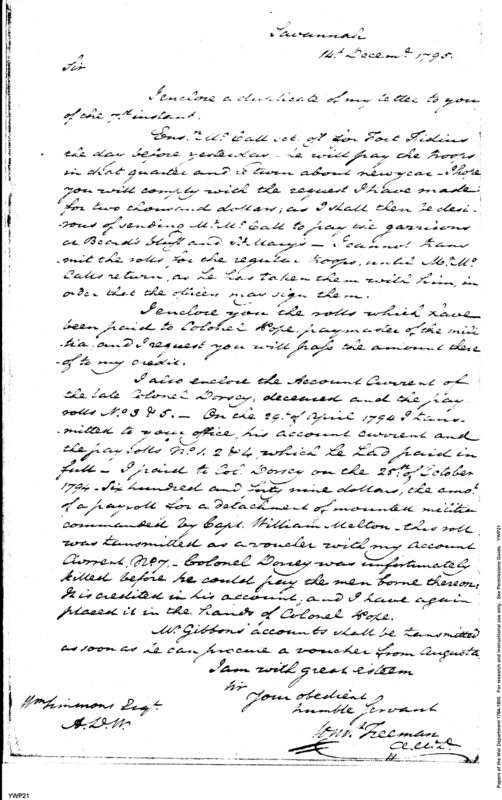 Savannah
14th Decemr 1795.
Sir
I enclose a duplicate of my letter to you
of the 7th instant.
Ensn McCall set off for Fort Fidius
the day before yesterday. he will pay the troops
in that quarter and return about new year - I hope
you will comply with the request I have made
for two thousand dollars; as I shall then be desi-
rous of sending Mr McCall to pay the garrisons
at Beard's bluff and St Mary's - I cannot trans
mit the rolls for the regular troops, until Mr Mc
Calls return, as he has taken them with him, in
order that the officers may sign them.
I enclose you the rolls which have
been paid to Colonel Pope, paymaster of the mili
tia, and I request you will pass the amount there
of to my credit.
I also enclose the Account Current of
the late Colonel Dorsey, deceased and the pay
rolls No 3 & 5. - On the 29th of April 1794 I trans-
mitted to your office, his account current and
the pay rolls No 1. 2 & 4, which he had paid in
full - I paid to Col. Dorsey on the 28th of October
1794 - Six hundred and forty nine dollars, the amot
of a payroll for a detachment of mounted militia
commanded by Capt. William Melton - this roll
was transmitted as a voucher with my Account
Current, No 7. - Colonel Dorsey was unfortunately
killed before he could pay the men borne thereon.
It is credited in his account, and I have again
placed it in the hands of Colonel Pope.
Mr Gibbons' accounts shall be transmitted
as soon as he can procure a voucher from Augusta
I am with great esteem
Sir
Your obedient
humble Servant
Wm Simmons Esqr
A.D.W.
Freeman
YWP21
Papers of the War Department 1784-1800. For research and instructional use only. See Permissions Guide. YWP21